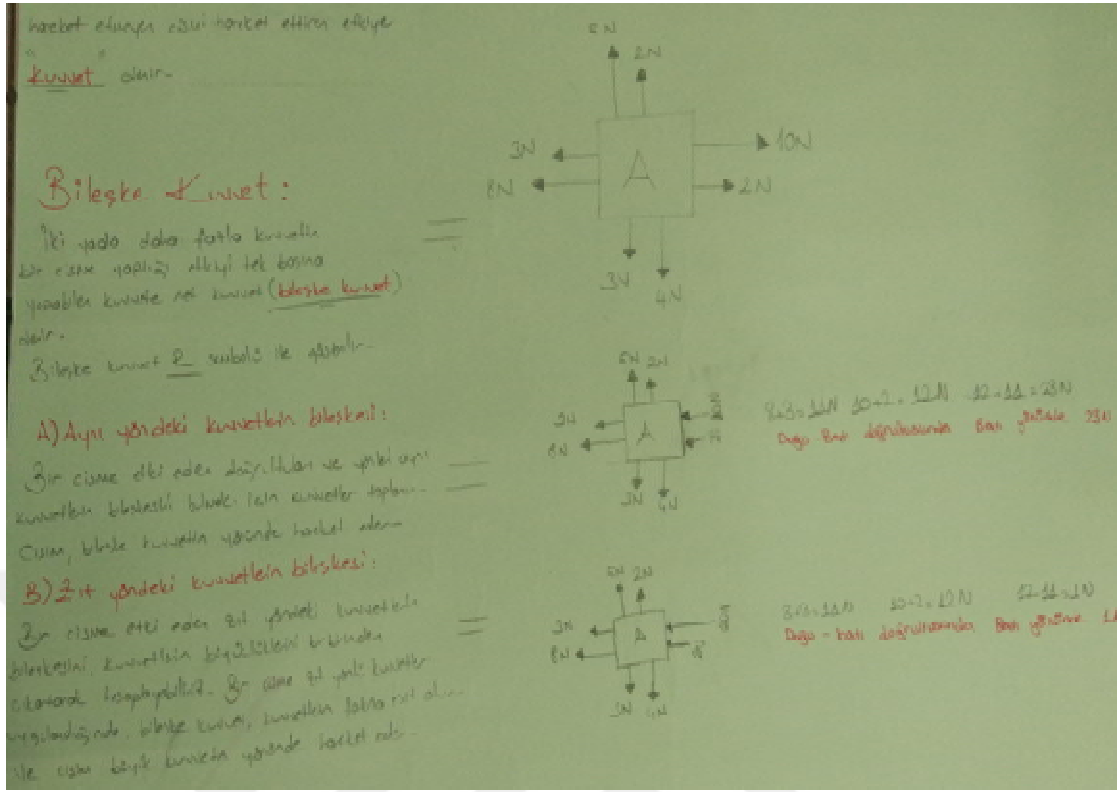 hareket etmeyen cismi hareket ettiren etkiye
"Kuvvet" denir.
Bileşke Kuvvet:
İki yada daha fazla kuvvetin
bir cisme yaptığı etkiyi tek başına
yapabilen kuvvete net kuvvet (bileşke kuvvet)
denir.
Bileşke kuvvet R sembolü ile gösterilir.
A) Aynı yöndeki kuvvetlerin bileşkesi:
Bir cisme etki eden doğrultuları ve yönleri aynı
kuvvetlerin bileşkesini bulmak için kuvvetler toplanır.
Cisim, bileşke kuvvetin yönünde hareket eder.
B) Zıt yöndeki kuvvetlerin bileşkesi:
Bir cisme etki eden zıt yöndeki kuvvetlerin
bileşkesini, kuvvetlerin büyüklüklerini birbirinden
çıkararak hesaplayabiliriz. Bir cisme zıt yönlü kuvvetler
uygulandığında, bileşke kuvvet, kuvvetlerin farkına eşit olur.
ve cisim büyük kuvvetin yönünde hareket eder.
6N
2N
3N
10N
8N
A
2N
3N
4N
6N 2N
3N
8N
A
3N 4N
8+3=11N 10+2=12N 12+11=23N
Doğu Batı doğrultusunda Batı yönünde 23N
6N 2N
3N
8N
A
3N 4N
8+3=11N 10+2=12N 12-11=1N
Doğu-batı doğrultusunda Batı yönüne